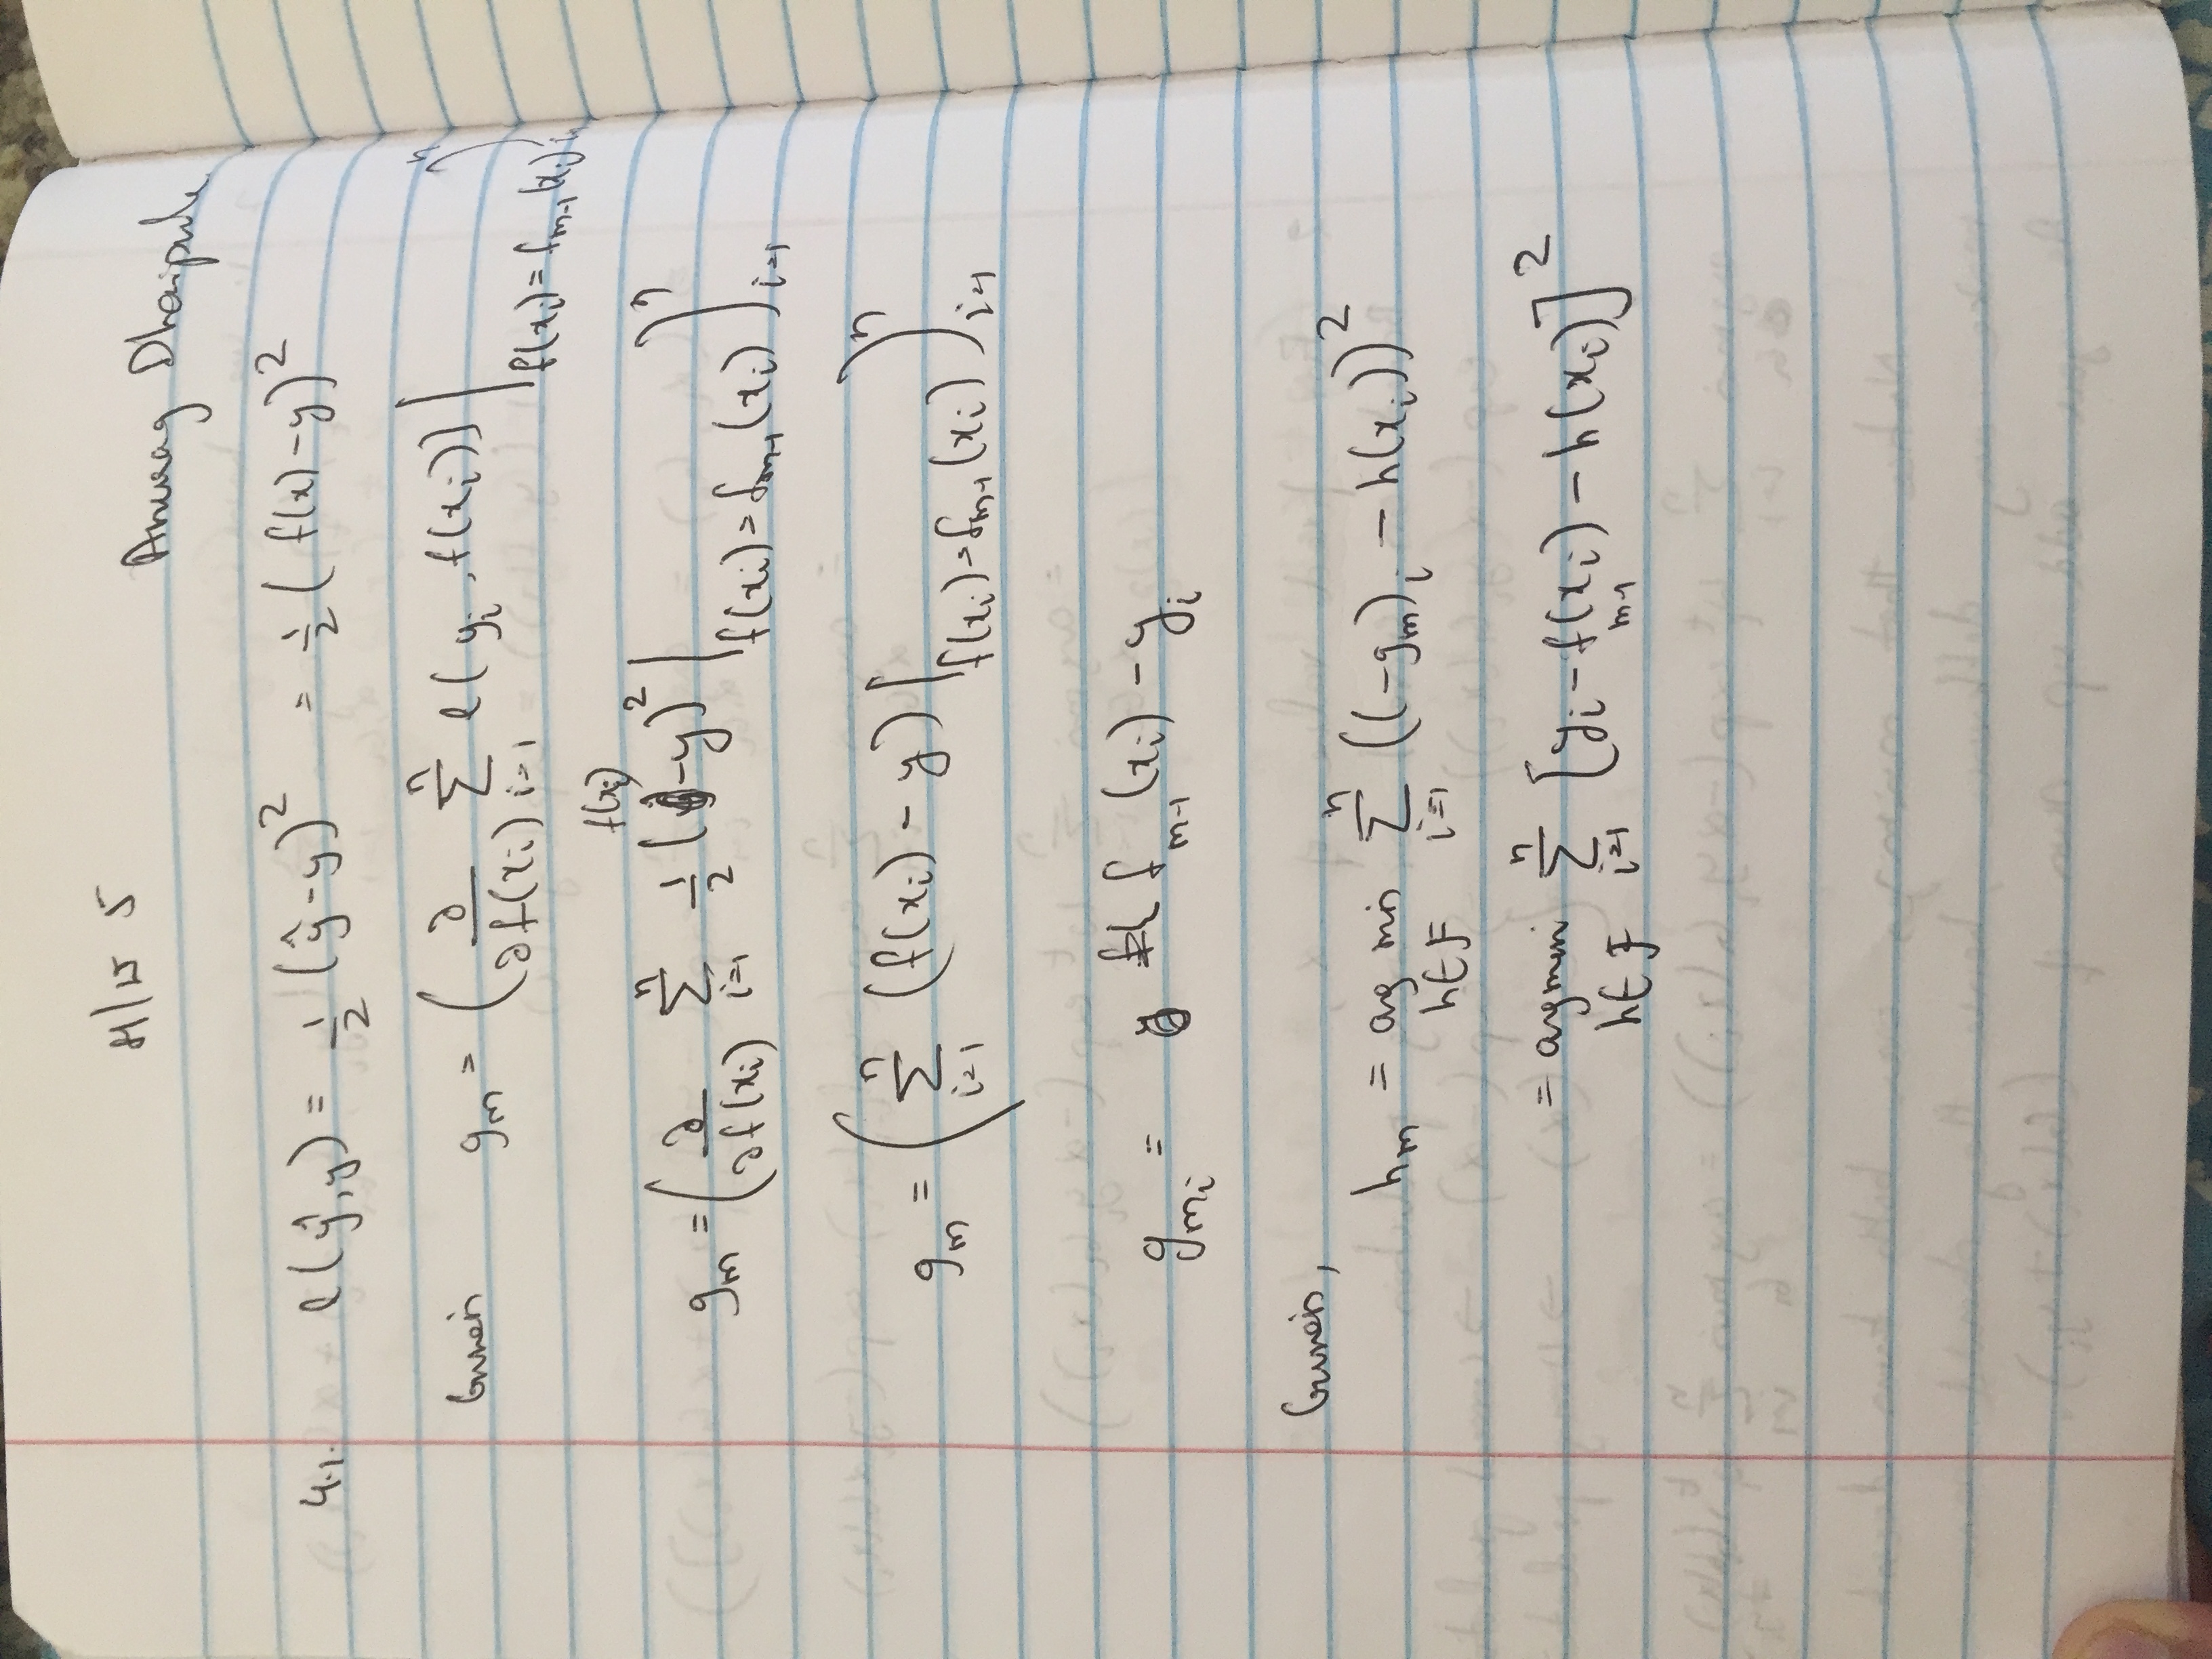 H/W 5
Anurag Dhaipule
4.1. ℓ(ŷ,y) = 1/2 (ŷ-y)² = 1/2 (f(x)-y)²
Given g_m = (∂/∂f(x_i) Σ_{i=1}^n ℓ(y_i, f(x_i))|_{f(x_i)=f_{m-1}(x_i)})_{i=1}^n
g_m = (∂/∂f(x_i) Σ_{i=1}^n 1/2 (f(x_i)-y)²|_{f(x_i)=f_{m-1}(x_i)})_{i=1}^n
g_m = (Σ_{i=1}^n (f(x_i)-y)|_{f(x_i)=f_{m-1}(x_i)})_{i=1}^n
g_{m_i} = f_{m-1}(x_i) - y_i
Given,
h_m = arg min_{h∈F} Σ_{i=1}^n ((-g_m)_i - h(x_i))²
= argmin_{h∈F} Σ_{i=1}^n [y_i - f_{m-1}(x_i) - h(x_i)]²